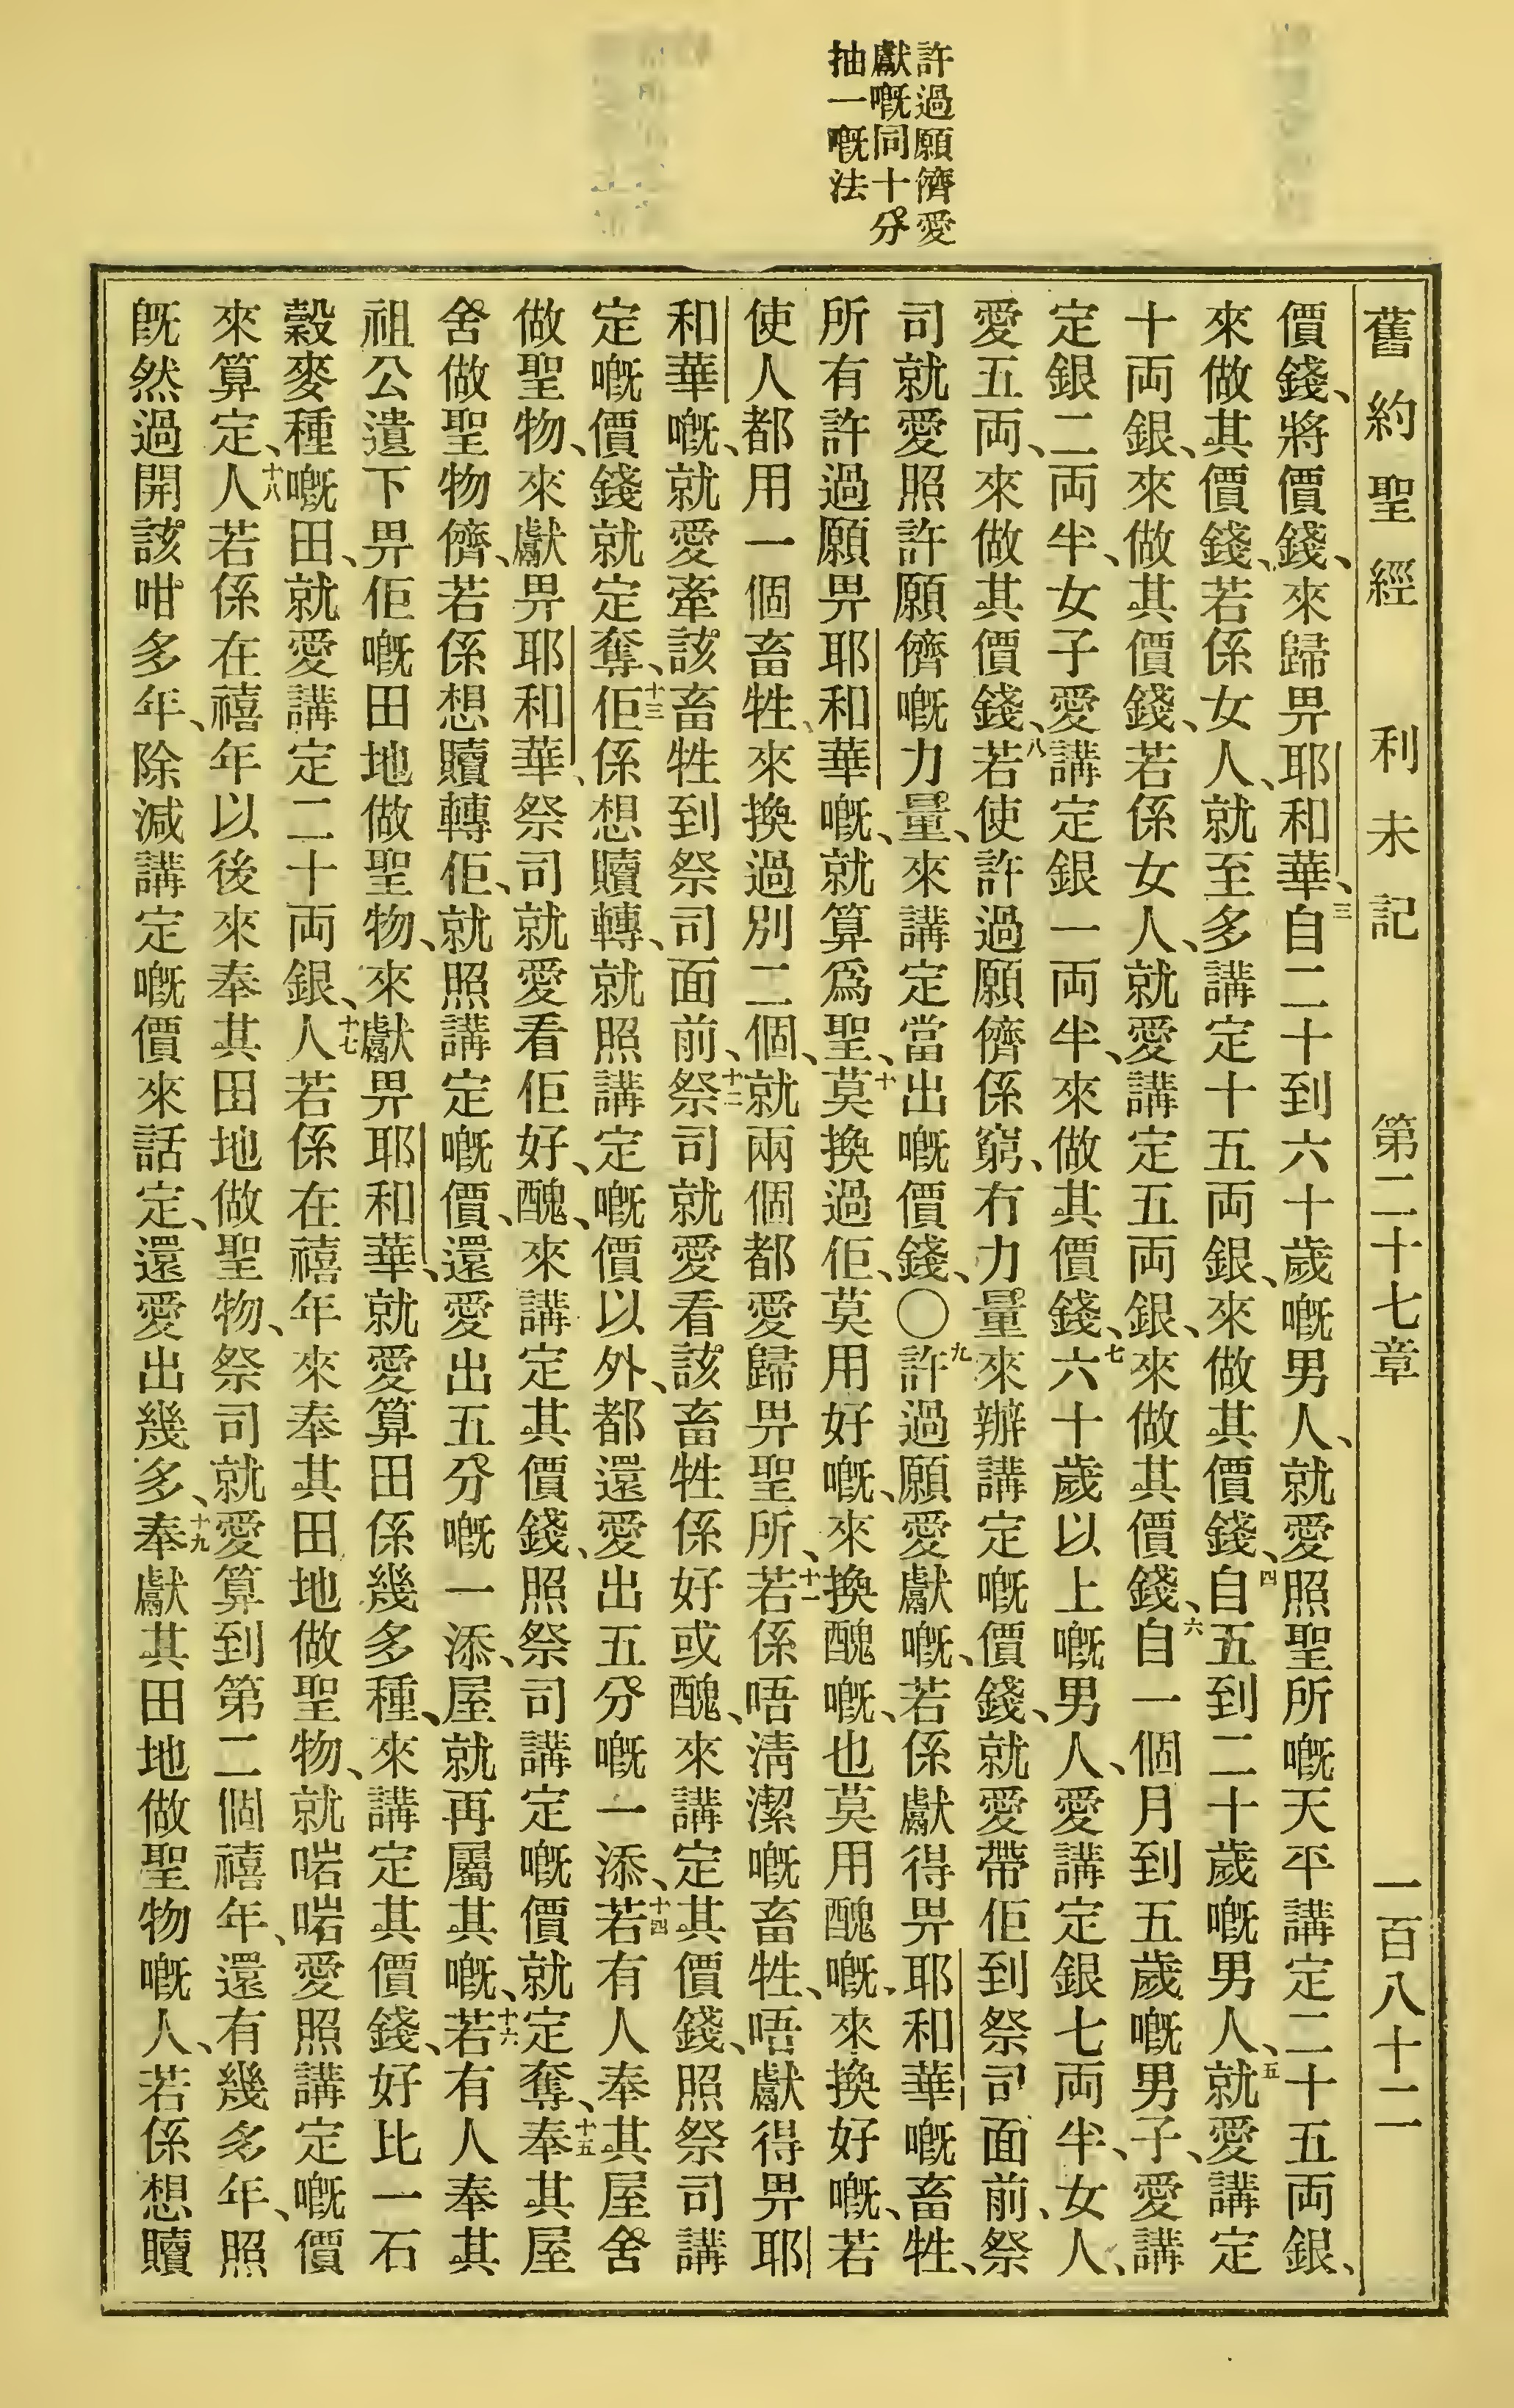 許過願儕愛
獻嘅同十分
抽一嘅法
舊約聖經 利未記 第二十七章 一百八十二
價錢、將價錢、來歸畀耶和華、三自二十到六十歲嘅男人、就愛照聖所嘅天平講定二十五両銀、
來做其價錢、若係女人、就至多講定十五両銀、來做其價錢、四自五到二十歲嘅男人、五就愛講定
十両銀、來做其價錢、若係女人、就愛講定五両銀、來做其價錢、六自一個月到五歲嘅男子、愛講
定銀二両半、女子愛講定銀一両半、來做其價錢、七六十歲以上嘅男人、愛講定銀七両半、女人、
愛五両、來做其價錢、八若使許過願儕係窮、冇力量來辦講定嘅價錢、就愛帶佢到祭司面前、祭
司就愛照許願儕嘅力量、來講定當出嘅價錢、〇九許過願愛獻嘅、若係獻得畀耶和華嘅畜牲、
所有許過願畀耶和華嘅、就算爲聖、十莫換過佢、莫用好嘅、來換醜嘅、也莫用醜嘅、來換好嘅、若
使人都用一個畜牲、來換過別二個、就兩個都愛歸畀聖所、十一若係唔淸潔嘅畜牲、唔獻得畀耶
和華嘅、就愛牽該畜牲到祭司面前、十二祭司就愛看該畜牲係好或醜、來講定其價錢、照祭司講
定嘅價錢就定奪、十三佢係想贖轉、就照講定嘅價以外、都還愛出五分嘅一添、十四若有人奉其屋舍
做聖物、來獻畀耶和華、祭司就愛看佢好、醜、來講定其價錢、照祭司講定嘅價就定奪、十五奉其屋
舍做聖物儕、若係想贖轉佢、就照講定嘅價、還愛出五分嘅一添、屋就再屬其嘅、十六若有人奉其
祖公遺下畀佢嘅田地做聖物、來獻畀耶和華、就愛算田係幾多種、來講定其價錢、好比一石
穀麥種嘅田、就愛講定二十両銀、十七人若係在禧年來奉其田地做聖物、就啱啱愛照講定嘅價
來算定、十八人若係在禧年以後來奉其田地做聖物、祭司就愛算到第二個禧年、還有幾多年、照
旣然過開該咁多年、除減講定嘅價來話定、還愛出幾多、十九奉獻其田地做聖物嘅人、若係想贖